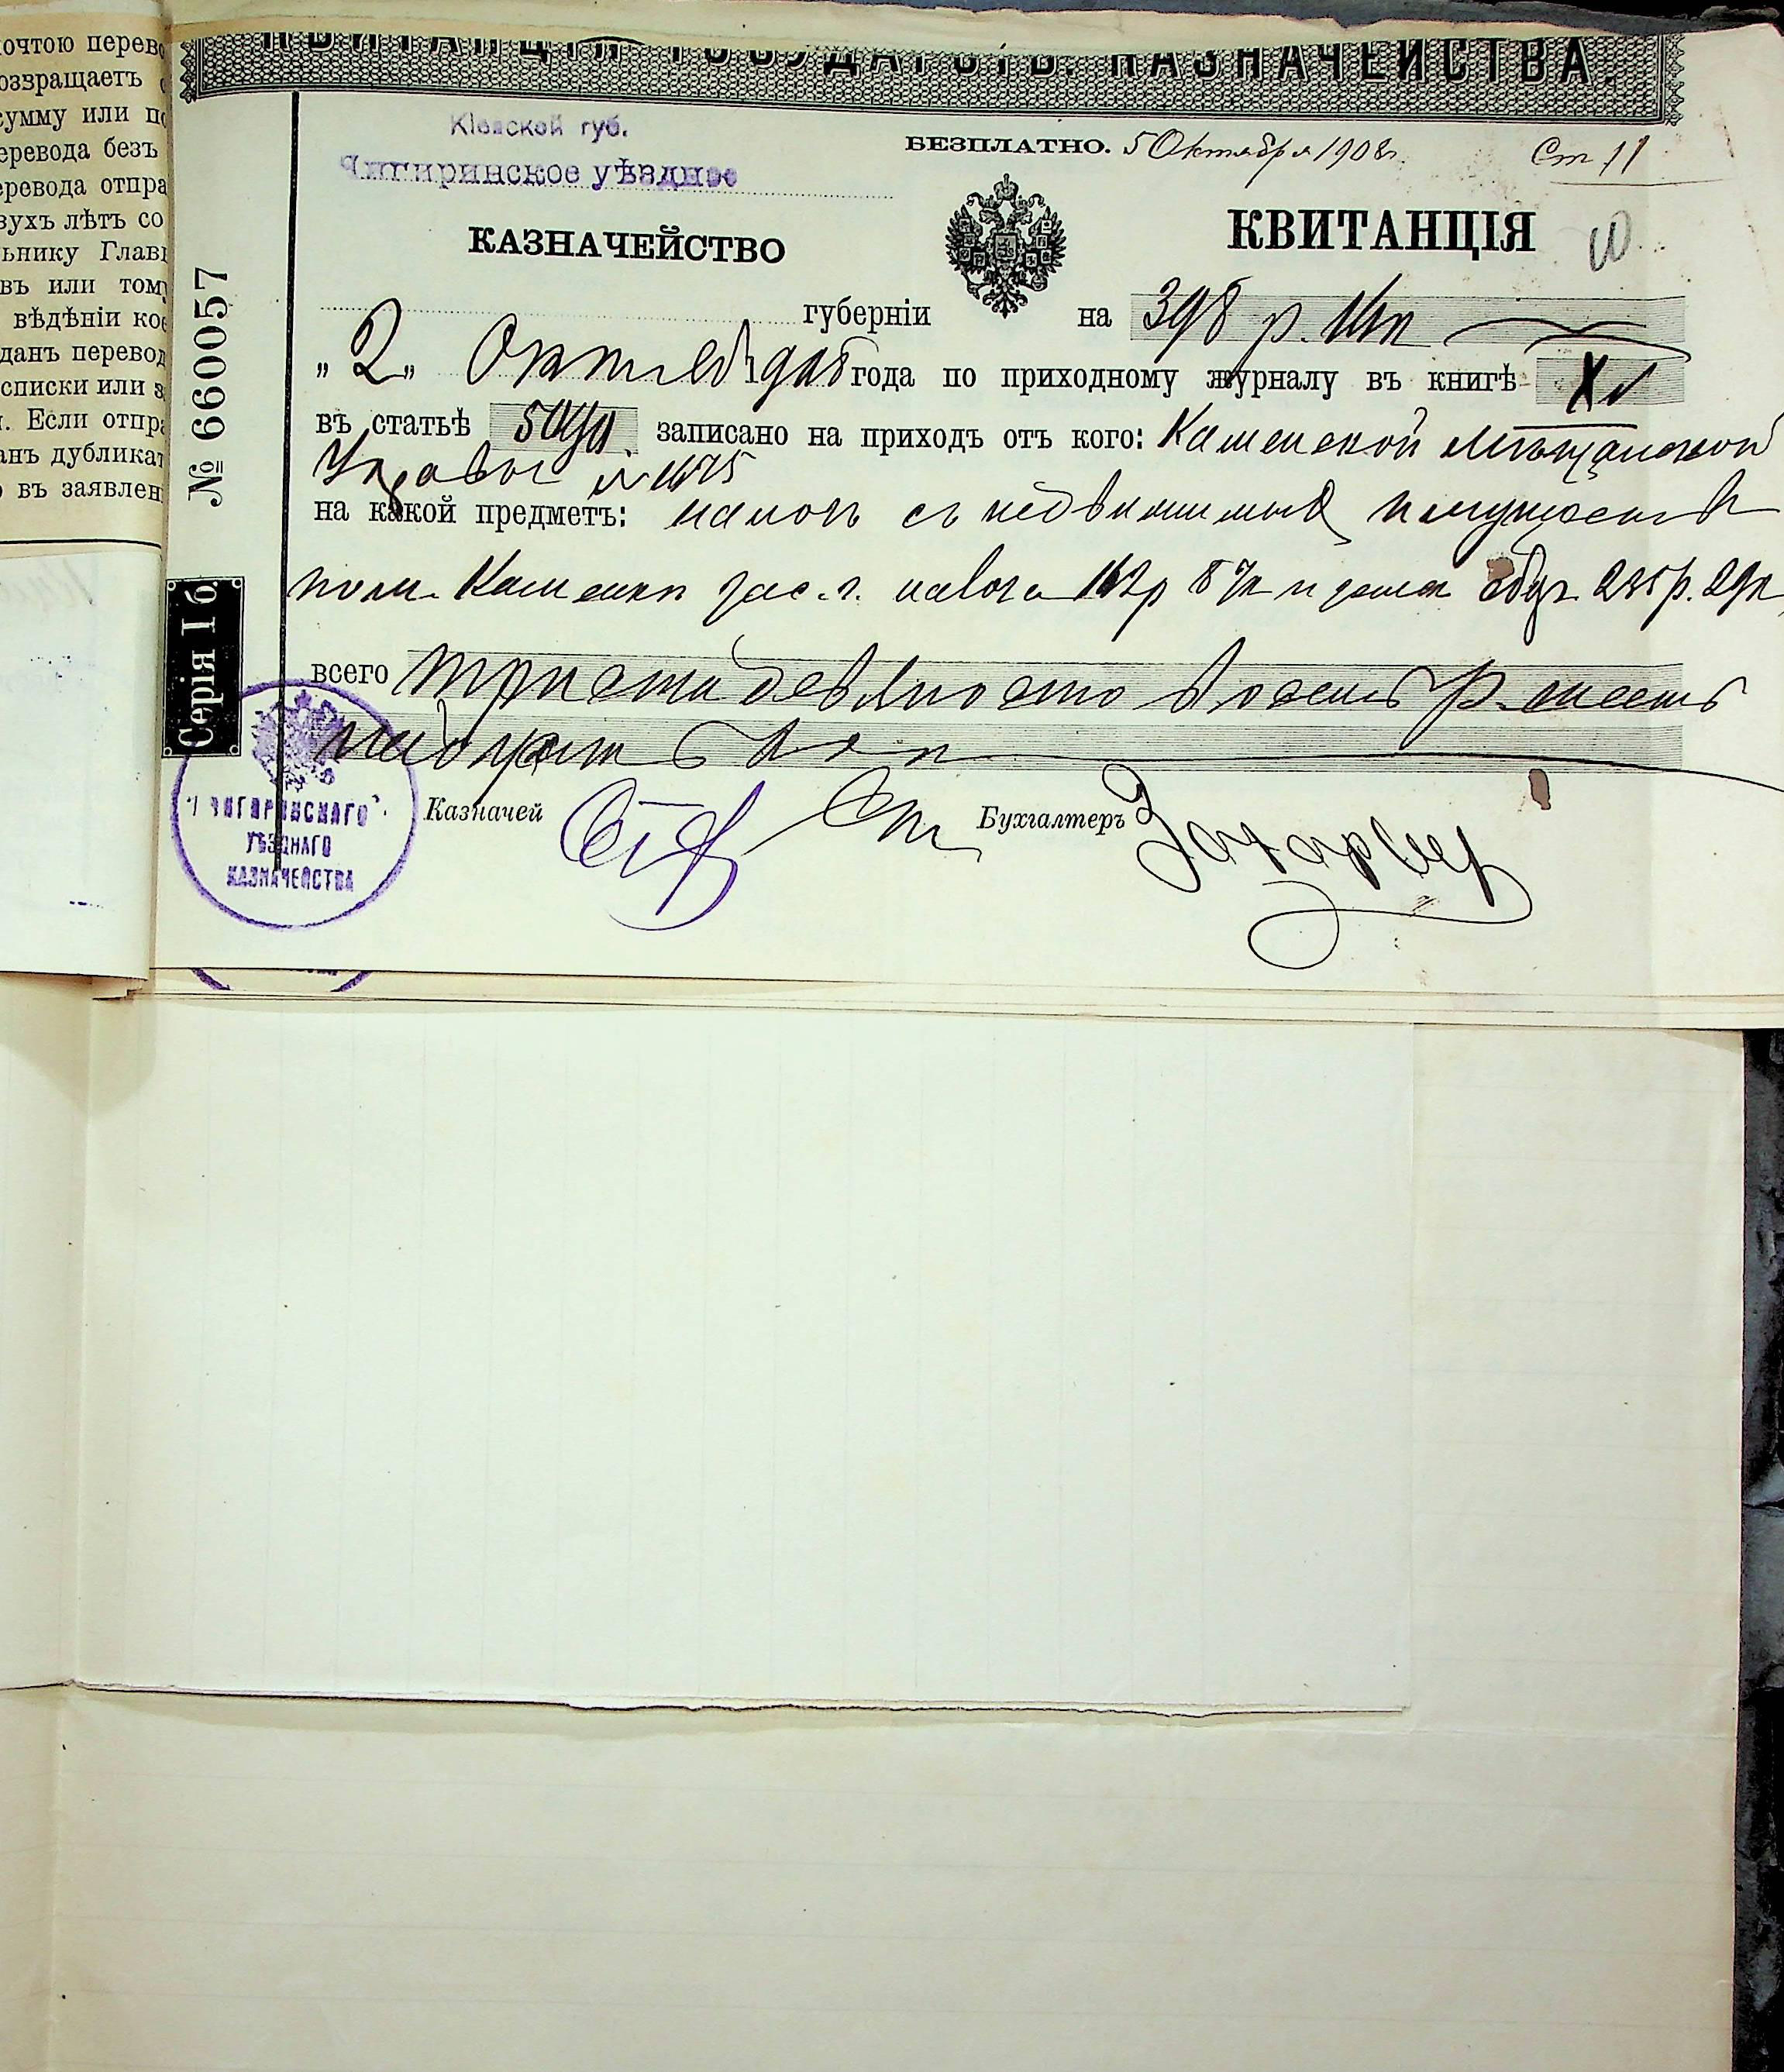 КВИТАНЦІЯ ГОСУДАРСТВ. КАЗНАЧЕЙСТВА.
Кіевской губ.
Чигиринское уѣздное
БЕЗПЛАТНО. 5 Октября 1908 г.
Ст 11
КАЗНАЧЕЙСТВО
КВИТАНЦІЯ
губерніи
на 398 р. 16 к
„2„ Октяб 1908 года по приходному журналу въ книгѣ XV
въ статьѣ записано на приходъ отъ кого: Каменской Мѣщанской
Управы №
на какой предметъ: налогъ съ недвижимыхъ имуществъ
мѣст. Каменки 162 р 87 к и 235 р. 29 к
всего триста девяносто восемь р. шест
надцать коп
Казначей
Бухгалтеръ Захар
№ 660057
Серія I б.
ЧИГИРИНСКАГО
УѢЗДНАГО
КАЗНАЧЕЙСТВА
почтою перево
озвращаетъ
сумму или по
еревода безъ
еревода отпра
вухъ лѣтъ со
ьнику Глав
въ или тому
вѣдѣніи кое
данъ перевод
списки или з
. Если отпра
анъ дубликат
въ заявлен